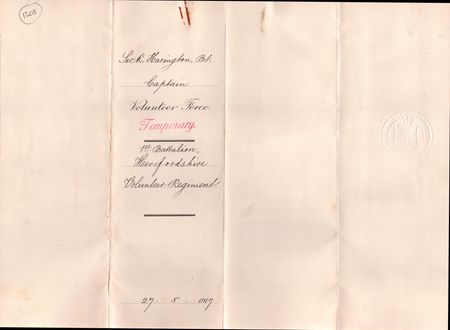 1208
Sir R. Harington, Bt.
Captain
Volunteer Force.
Temporary.
1st Battalion,
Herefordshire
Volunteer Regiment
27 . 8 . 1917